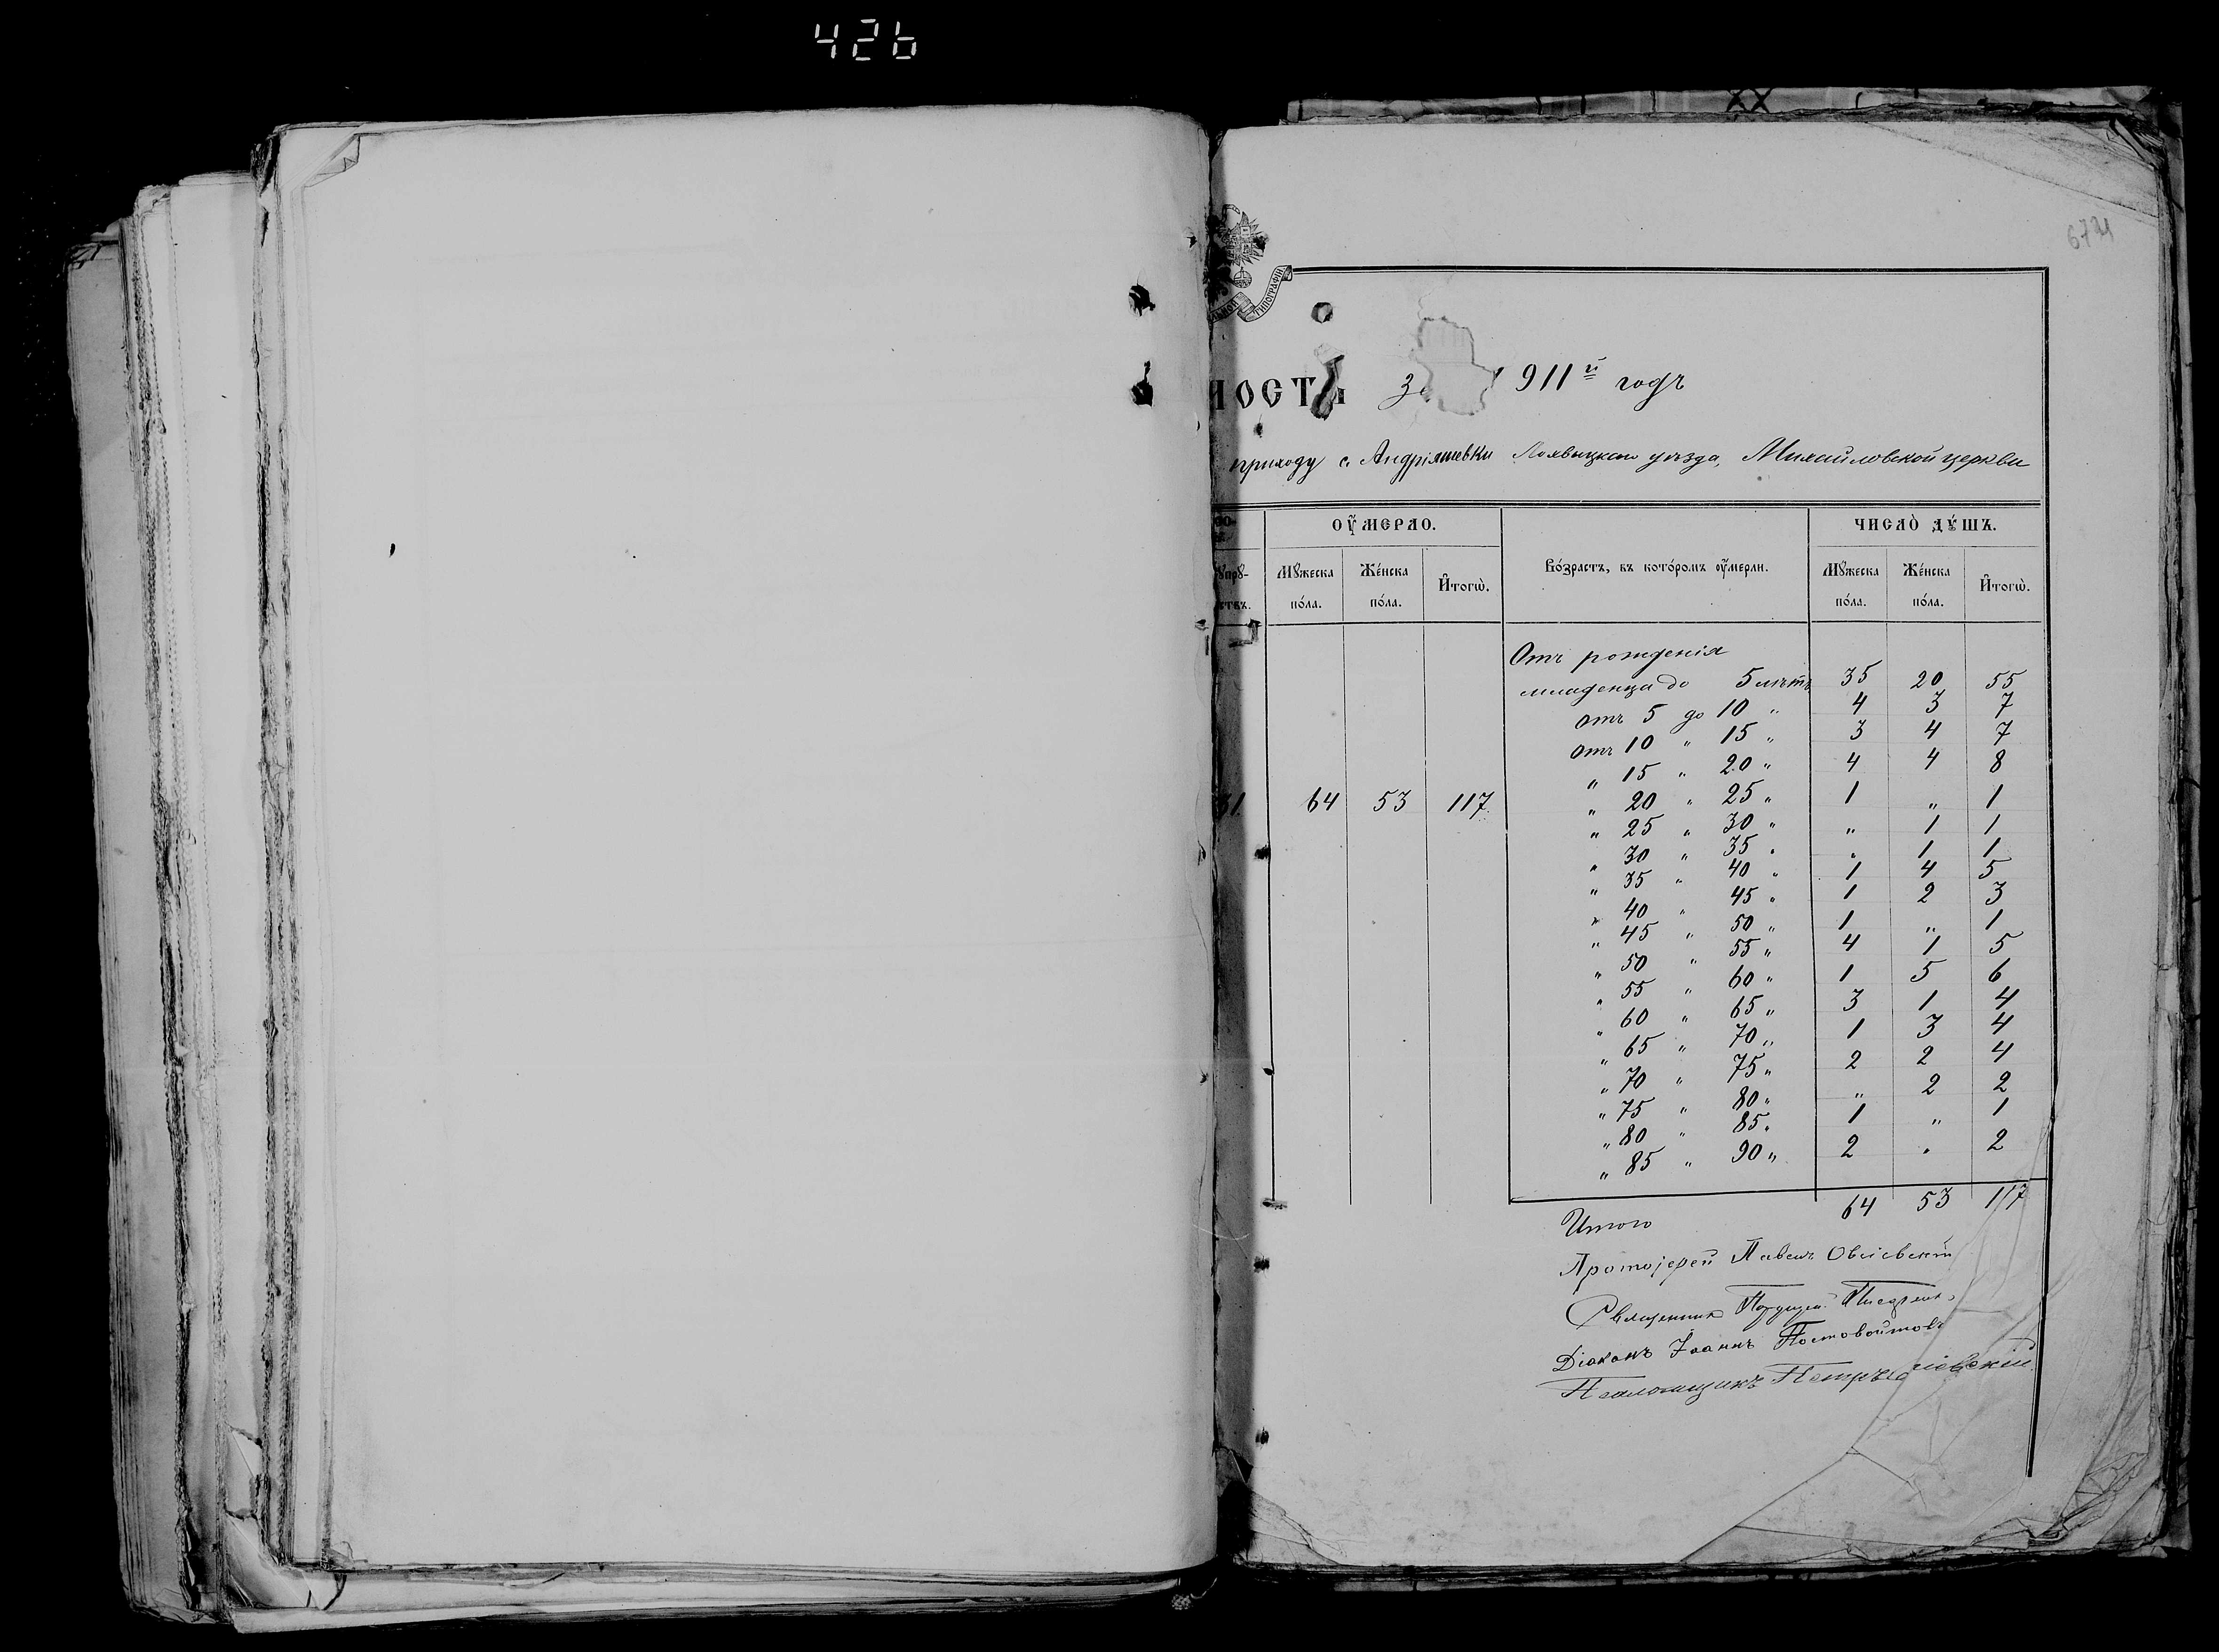 426
XX
6721
ТИПОГРАФІИ
НОСТИ за 1911й годъ
приходу с. Андріяшевки Лохвицкаго уѣзда, Михайловской церкви
ОУМЕРЛО. ЧИСЛО ДУШЪ.
Мужеска пола. Женска пола. Итогѡ. Возрастъ, въ которомъ оумерли. Мужеска пола. Женска пола. Итогѡ.
Отъ рожденія
младенца до 5 лѣтъ 35 20 55
отъ 5 до 10 " 4 3 7
отъ 10 " 15 " 3 4 7
" 15 " 20 " 4 4 8
31. 64 53 117 " 20 " 25 " 1 " 1
" 25 " 30 " " 1 1
" 30 " 35 " " 1 1
" 35 " 40 " 1 4 5
" 40 " 45 " 1 2 3
" 45 " 50 " 1 " 1
" 50 " 55 " 4 1 5
" 55 " 60 " 1 5 6
" 60 " 65 " 3 1 4
" 65 " 70 " 1 3 4
" 70 " 75 " 2 2 4
" 75 " 80 " " 2 2
" 80 " 85 " 1 " 1
" 85 " 90 " 2 " 2
Итого 64 53 117
Протоіерей Павелъ
Священникъ
Діаконъ Іоаннъ Постовойтовъ
Псаломщикъ Петръ